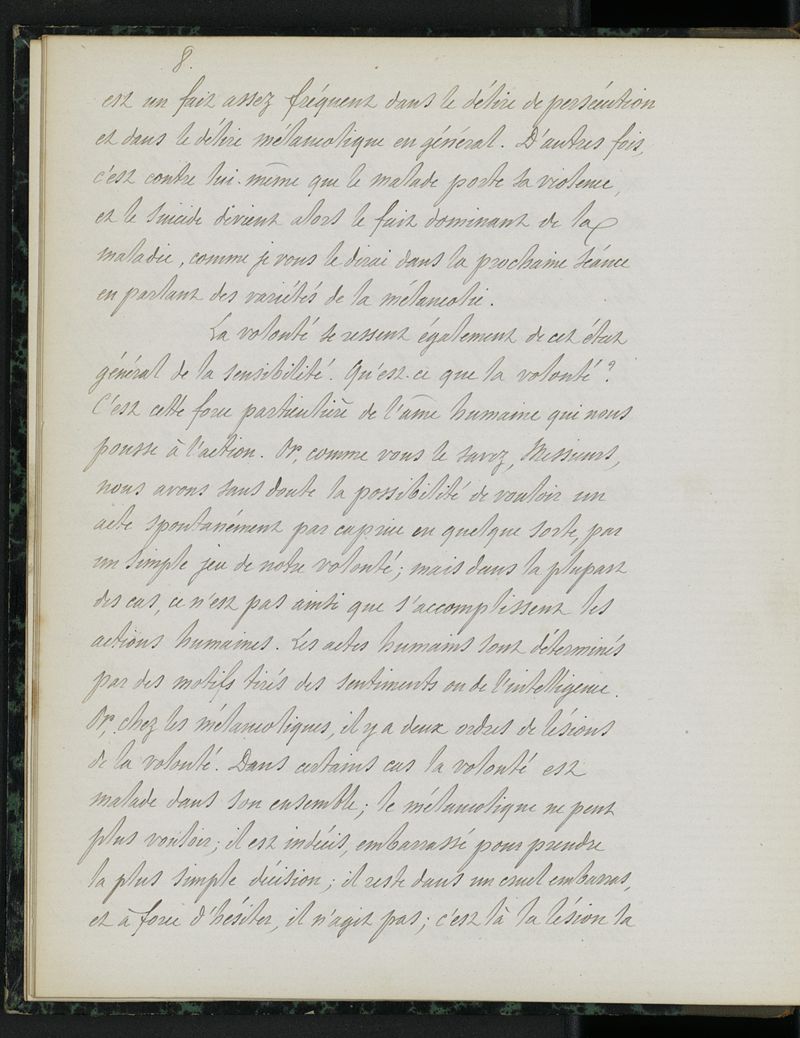 8.
est un fait assez fréquent dans le délire de persécution
et dans le délire mélancolique en général. D'autres fois,
c'est contre lui-même que le malade porte sa violence,
et le suicide devient alors le fait dominant de la
maladie, comme je vous le dirai dans la prochaine séance
en parlant des variétés de la mélancolie.
La volonté se ressent également de cet état
général de la sensibilité. Qu'est-ce que la volonté ?
C'est cette force particulière de l'âme humaine qui nous
pousse à l'action. Or, comme vous le savez, Messieurs,
nous avons sans doute la possibilité de vouloir un
acte spontanément par caprice en quelque sorte, par
un simple jeu de notre volonté ; mais dans la plupart
des cas, ce n'est pas ainsi que s'accomplissent les
actions humaines. Les actes humains sont déterminés
par des motifs tirés des sentiments ou de l'intelligence.
Or, chez les mélancoliques, il y a deux ordres de lésions
de la volonté. Dans certains cas la volonté est
malade dans son ensemble ; le mélancolique ne peut
plus vouloir ; il est indécis, embarrassé pour prendre
la plus simple décision ; il reste dans un cruel embarras,
et à force d'hésiter, il n'agit pas ; c'est là la lésion la